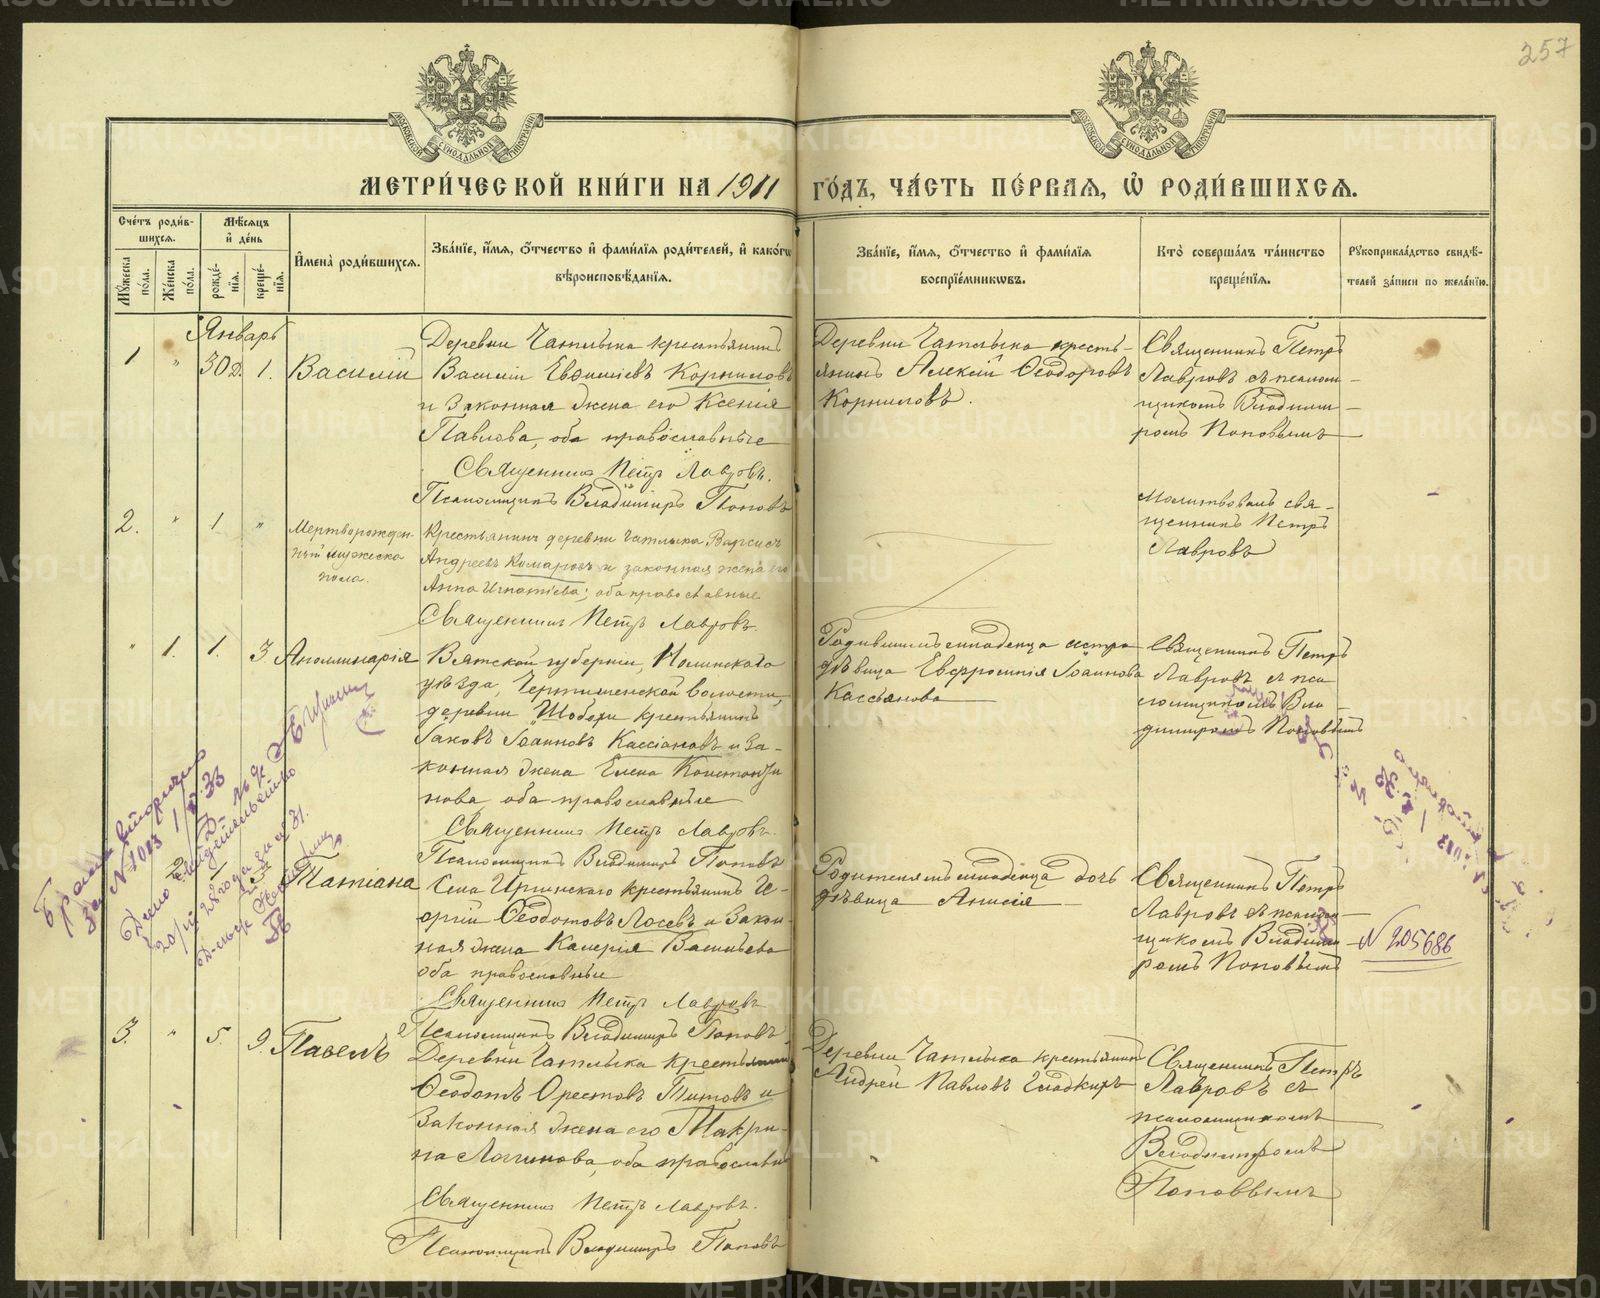 257
МЕТРИ́ЧЕСКОЙ КНИ́ГИ НА 1911 ГО́ДЪ, ЧА́СТЬ ПЕ́РВАЯ, Ѡ РОДИ́ВШИХСЯ.
Сче́тъ роди́в-
шихся.
Мѣ́сяцъ
и҆ де́нь
И҆мена̀ роди́вшихся.
Зва́нїе, и҆́мя, ѻ҆́тчество и҆ фами́лїя роди́телей, и҆ како́гѡ
вѣроисповѣ́данїя.
Зва́нїе, и҆́мя, ѻ҆́тчество и҆ фами́лїя
воспрїе́мниковъ.
Кто̀ соверша́лъ та́инство
креще́нїя.
Рꙋкоприкла́дство свидѣ́-
телей за́писи по жела́нїю.
Мꙋ́жеска
по́ла.
Же́нска
по́ла.
рожде́-
нїя.
креще́-
нїя.
Январь
1 " 30 д. 1. Василій
Деревни Чатлыка крестьянинъ
Василій Евѳиміевъ Корниловъ
и законная жена его Ксенія
Павлова, оба православные
Священникъ Петръ Лавровъ.
Псаломщикъ Владиміръ Поповъ
Деревни Чатлыка кресть-
янинъ Алексій Ѳеодоровъ
Корниловъ.
Священникъ Петръ
Лавровъ съ псалом-
щикомъ Владими-
ромъ Поповымъ
2. " 1. "
Мертворожден-
ный мужеска
пола.
Крестьянинъ деревни Чатлыка
Андреевъ Комаровъ и законная жена его
Анна Игнатіева; оба православные
Священникъ Петръ Лавровъ.
Молитвовалъ свя-
щенникъ Петръ
Лавровъ
" 1. 1. 3 Аполлинарія
Вятской губерніи, Нолинскаго
уѣзда, волости,
деревни крестьянинъ
Іаковъ Іоанновъ Кассіановъ и за-
конная жена Елена Константи
нова, оба православные
Священникъ Петръ Лавровъ.
Псаломщикъ Владиміръ Поповъ
Родившимъ младенца сестра
дѣвица Евфросинія Іоаннова
Кассіанова
Священникъ Петръ
Лавровъ съ пса
ломщикомъ Вла-
диміромъ Поповымъ
2 Татіана
Села Иргинскаго крестьянинъ Ге-
оргій Ѳеодотовъ Лосевъ и закон-
ная жена Калерія Васильева
оба православные
Священникъ Петръ Лавровъ
Псаломщикъ Владиміръ Поповъ
Родителямъ младенца дочь
дѣвица Анисія
Священникъ Петръ
Лавровъ съ псалом-
щикомъ Владими-
ромъ Поповымъ
N 205686
3. " 5. 9. Павелъ
Деревни Чатлыка крестьянинъ
Ѳеодотъ Орестовъ Титовъ и
законная жена его Макри-
на Логинова, оба православные
Священникъ Петръ Лавровъ.
Псаломщикъ Владиміръ Поповъ
Деревни Чатлыка крестьянинъ
Андрей Павловъ Гладкихъ
Священникъ Петръ
Лавровъ съ
псаломщикомъ
Владиміромъ
Поповымъ
за N 1013
METRIKI.GASO-URAL.RU